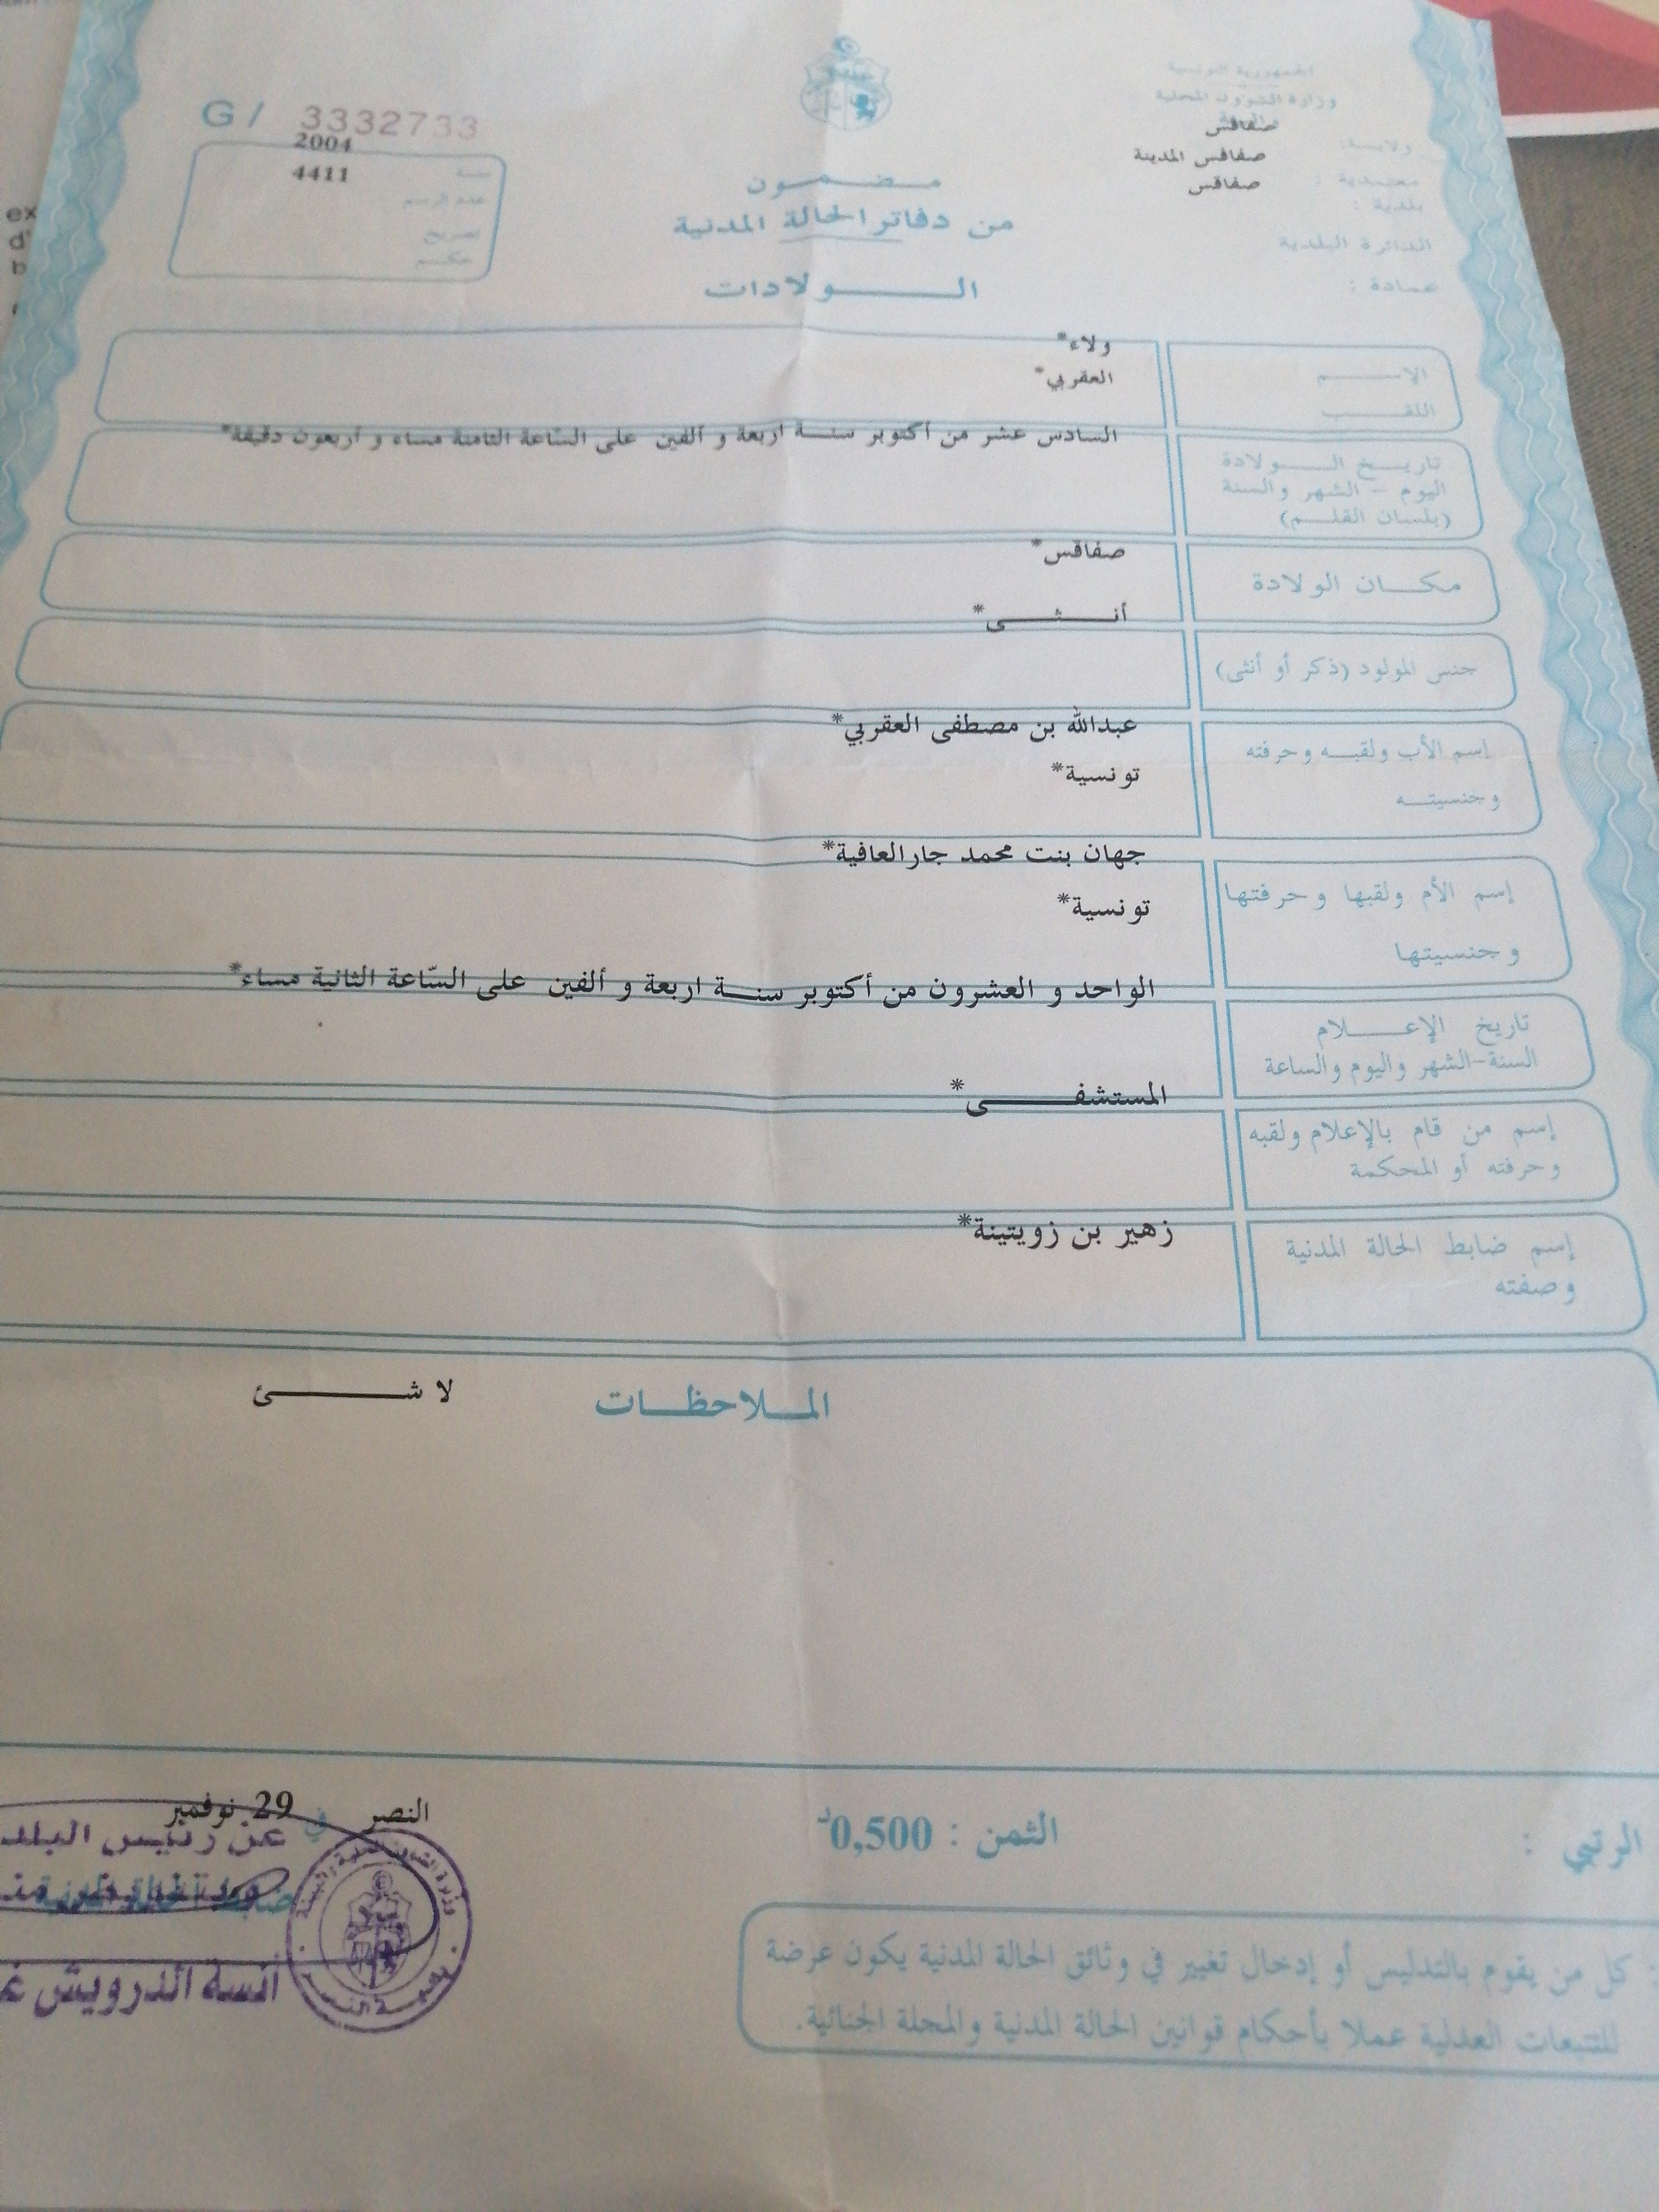 الجمهورية التونسية
وزارة الشؤون المحلية
ولاية: صفاقس
معتمدية : صفاقس المدينة
بلدية : صفاقس
الدائرة البلدية
عمادة :
G/ 3332733
سنة 2004
عدد الرسم 4411
تصريح
حكم
مضمون
من دفاتر الحالة المدنية
الولادات
الاسم ولاء*
اللقب العقربي*
تاريخ الولادة السادس عشر من أكتوبر سنة اربعة و ألفين على السّاعة الثامنة مساء و أربعون دقيقة*
اليوم - الشهر والسنة
(بلسان القلم)
مكان الولادة صفاقس*
جنس المولود (ذكر أو أنثى) أنثى*
إسم الأب ولقبه وحرفته عبدالله بن مصطفى العقربي*
وجنسيته تونسية*
إسم الأم ولقبها وحرفتها جهان بنت محمد جارالعافية*
وجنسيتها تونسية*
تاريخ الإعلام الواحد و العشرون من أكتوبر سنة اربعة و ألفين على السّاعة الثانية مساء*
السنة-الشهر واليوم والساعة
إسم من قام بالإعلام ولقبه المستشفى*
وحرفته أو المحكمة
إسم ضابط الحالة المدنية زهير بن زويتينة*
وصفته
الملاحظات لا شئ
الرتبي :
الثمن : 0,500د
النصر في 29 نوفمبر
عن رئيس البلد
ضابط الحالة المدنية
أنسة الدرويش
: كل من يقوم بالتدليس أو إدخال تغيير في وثائق الحالة المدنية يكون عرضة
للتتبعات العدلية عملا بأحكام قوانين الحالة المدنية والمجلة الجنائية.